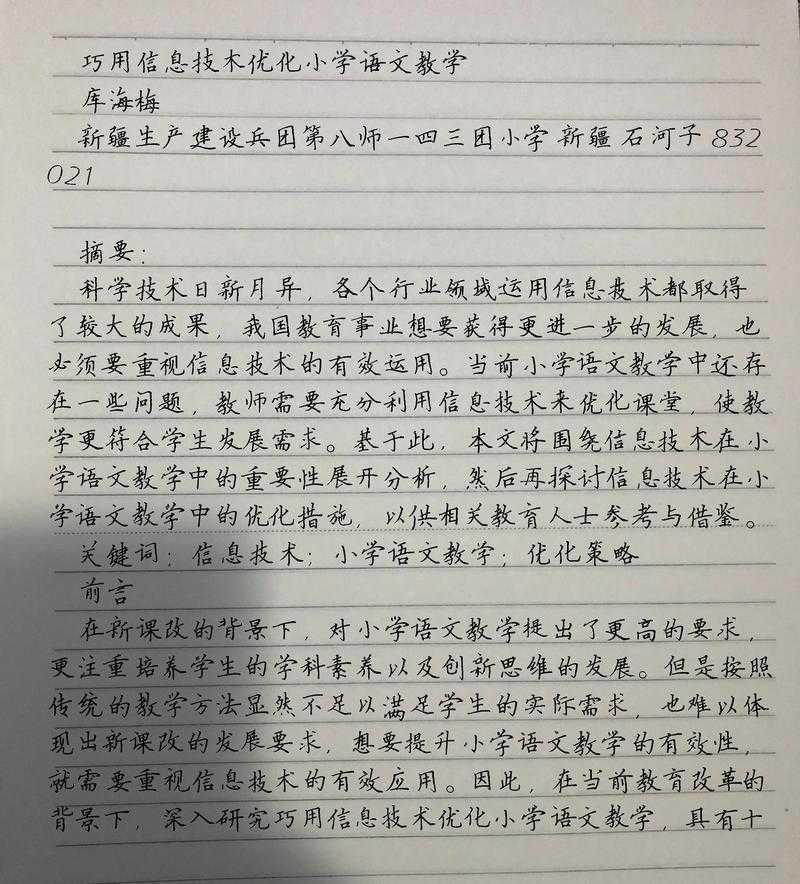 巧用信息技术优化小学语文教学
库海梅
新疆生产建设兵团第八师一四三团小学 新疆 石河子 832
021
摘要：
科学技术日新月异，各个行业领域运用信息技术都取得
了较大的成果，我国教育事业想要获得更进一步的发展，也
必须要重视信息技术的有效运用。当前小学语文教学中还存
在一些问题，教师需要充分利用信息技术来优化课堂，使教
学更符合学生发展需求。基于此，本文将围绕信息技术在小
学语文教学中的重要性展开分析，然后再探讨信息技术在小
学语文教学中的优化措施，以供相关教育人士参考与借鉴。
关键词：信息技术；小学语文教学；优化策略
前言
在新课改的背景下，对小学语文教学提出了更高的要求，
更注重培养学生的学科素养以及创新思维的发展。但是按照
传统的教学方法显然不足以满足学生的实际需求，也难以体
现出新课改的发展要求，想要提升小学语文教学的有效性，
就需要重视信息技术的有效应用。因此，在当前教育改革的
背景下，深入研究巧用信息技术优化小学语文教学，具有十